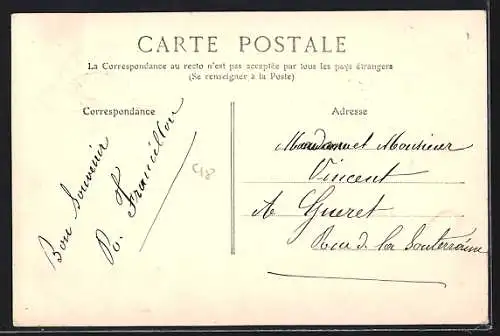 CARTE POSTALE
La Correspondance au recto n'est pas acceptée par tous les pays étrangers
(Se renseigner à la Poste)
Correspondance
Bon Souvenir
R. Francillon
C18
Adresse
Madame et Monsieur
Vincent
A Gueret
Rue de la Souterraine